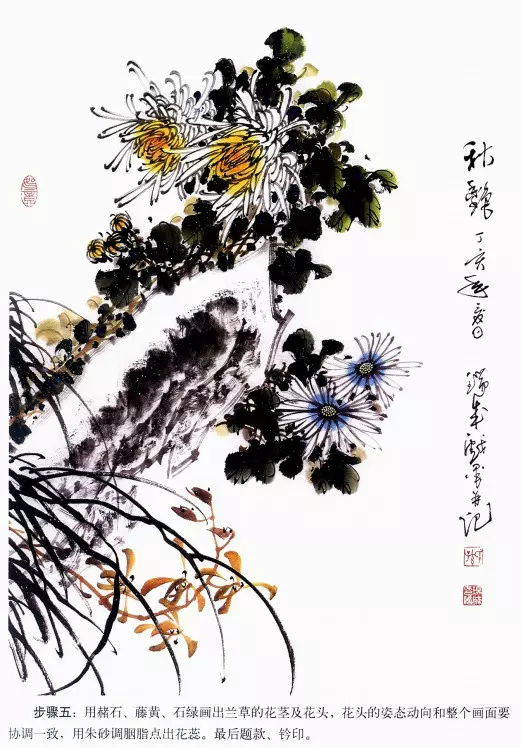 秋韵
丁亥年夏日
瑞成戏墨并记
步骤五：用赭石、藤黄、石绿画出兰草的花茎及花头，花头的姿态动向和整个画面要
协调一致，用朱砂调胭脂点出花蕊。最后题款、钤印。